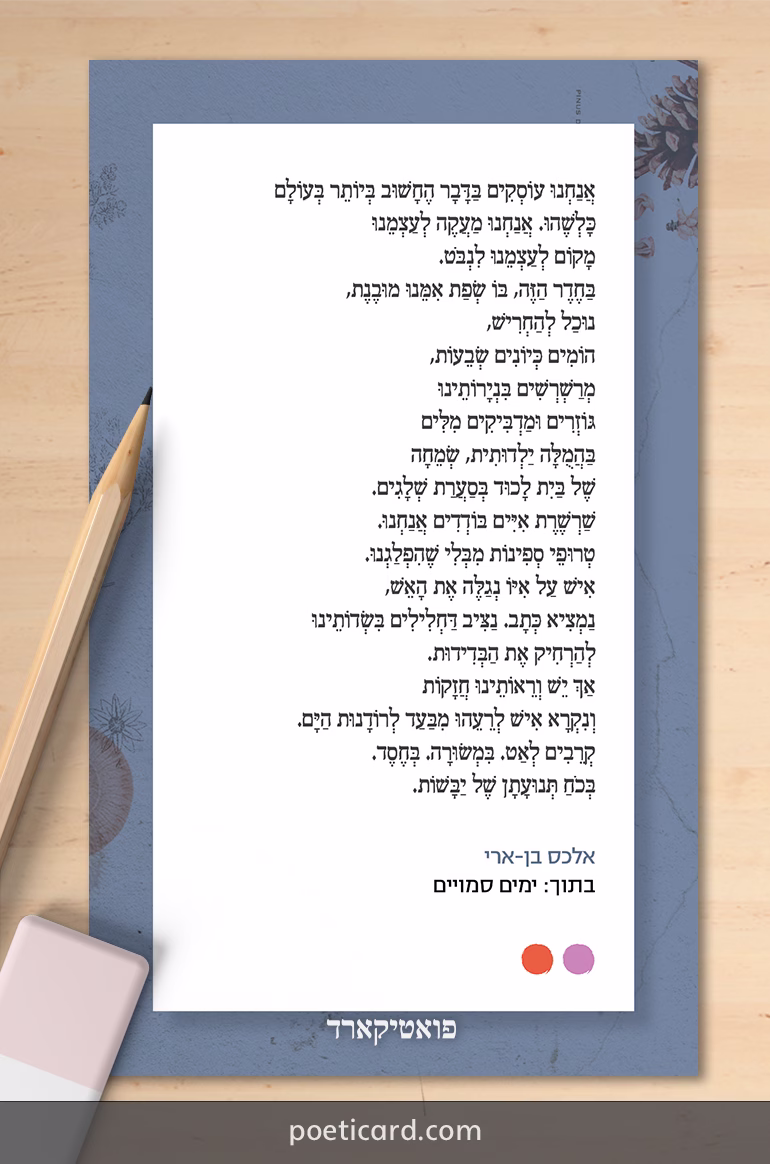 PINUS
אֲנַחְנוּ עוֹסְקִים בַּדָּבָר הֶחָשׁוּב בְּיוֹתֵר בְּעוֹלָם
כָּלְשֶׁהוּ. אֲנַחְנוּ מַעֲקֶה לְעַצְמֵנוּ
מָקוֹם לְעַצְמֵנוּ לִנְבֹּט.
בַּחֶדֶר הַזֶּה, בּוֹ שְׂפַת אִמֵּנוּ מוּבֶנֶת,
נוּכַל לְהַחְרִישׁ,
הוֹמִים כְּיוֹנִים שְׂבֵעוֹת,
מְרַשְׁרְשִׁים בִּנְיָרוֹתֵינוּ
גּוֹזְרִים וּמַדְבִּיקִים מִלִּים
בַּהֲמֻלָּה יַלְדוּתִית, שְׂמֵחָה
שֶׁל בַּיִת לָכוּד בְּסַעֲרַת שְׁלָגִים.
שַׁרְשֶׁרֶת אִיִּים בּוֹדְדִים אֲנַחְנוּ.
טְרוּפֵי סְפִינוֹת מִבְּלִי שֶׁהִפְלַגְנוּ.
אִישׁ עַל אִיּוֹ נְגַלֶּה אֶת הָאֵשׁ,
נַמְצִיא כְּתָב. נַצִּיב דַּחְלִילִים בִּשְׂדוֹתֵינוּ
לְהַרְחִיק אֶת הַבְּדִידוּת.
אַךְ יֵשׁ וְרֵאוֹתֵינוּ חֲזָקוֹת
וְנִקְרָא אִישׁ לְרֵעֵהוּ מִבַּעַד לְרוֹדָנוּת הַיָּם.
קְרֵבִים לְאַט. בִּמְשׂוּרָה. בְּחֶסֶד.
בְּכֹחַ תְּנוּעָתָן שֶׁל יַבָּשׁוֹת.
אלכס בן-ארי
בתוך: ימים סמויים
פואטיקארד
poeticard.com